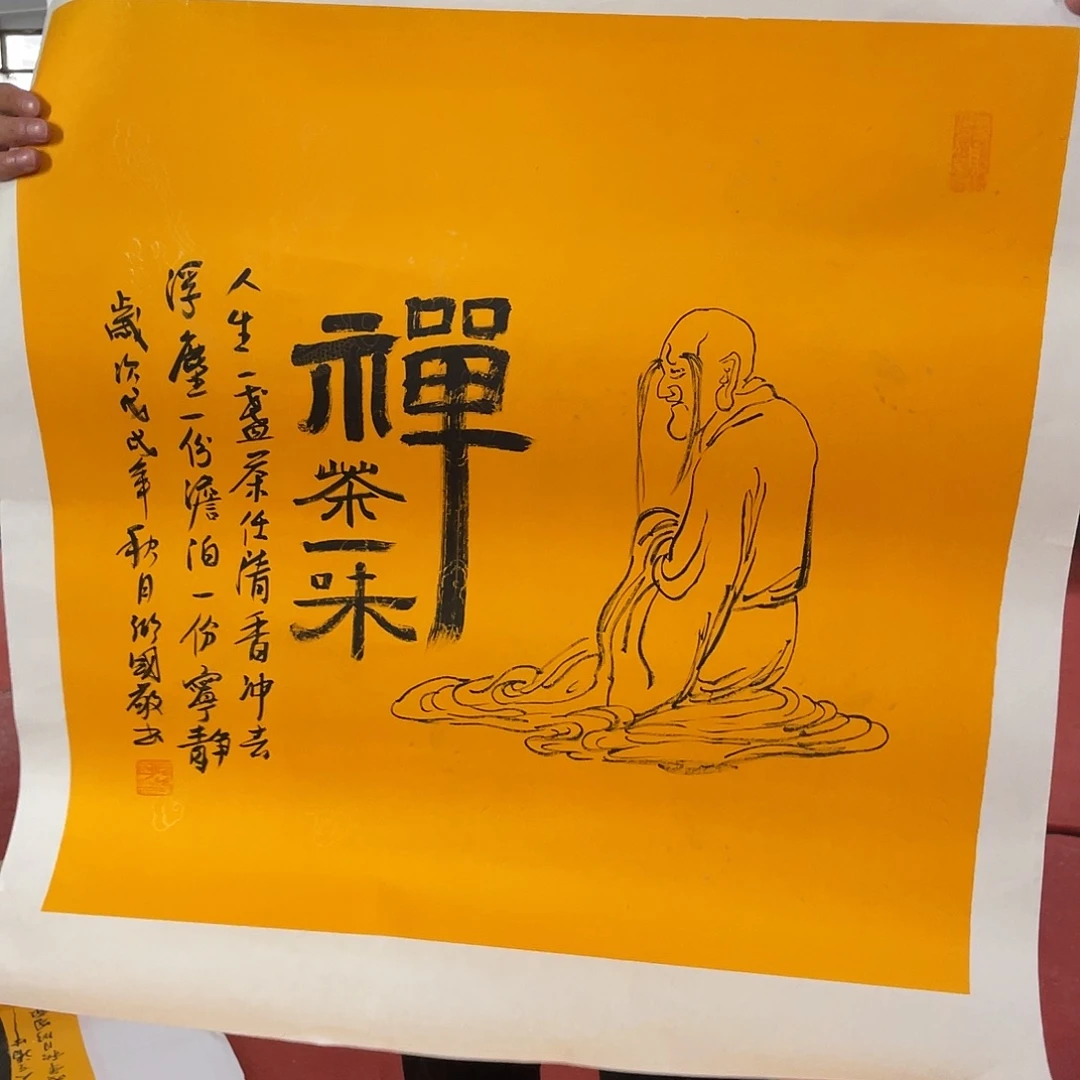 禪
茶一味
人生一盞茶任清香沖去
浮塵一份澹泊一份寧靜
歲次戊戌年秋月
國敬书